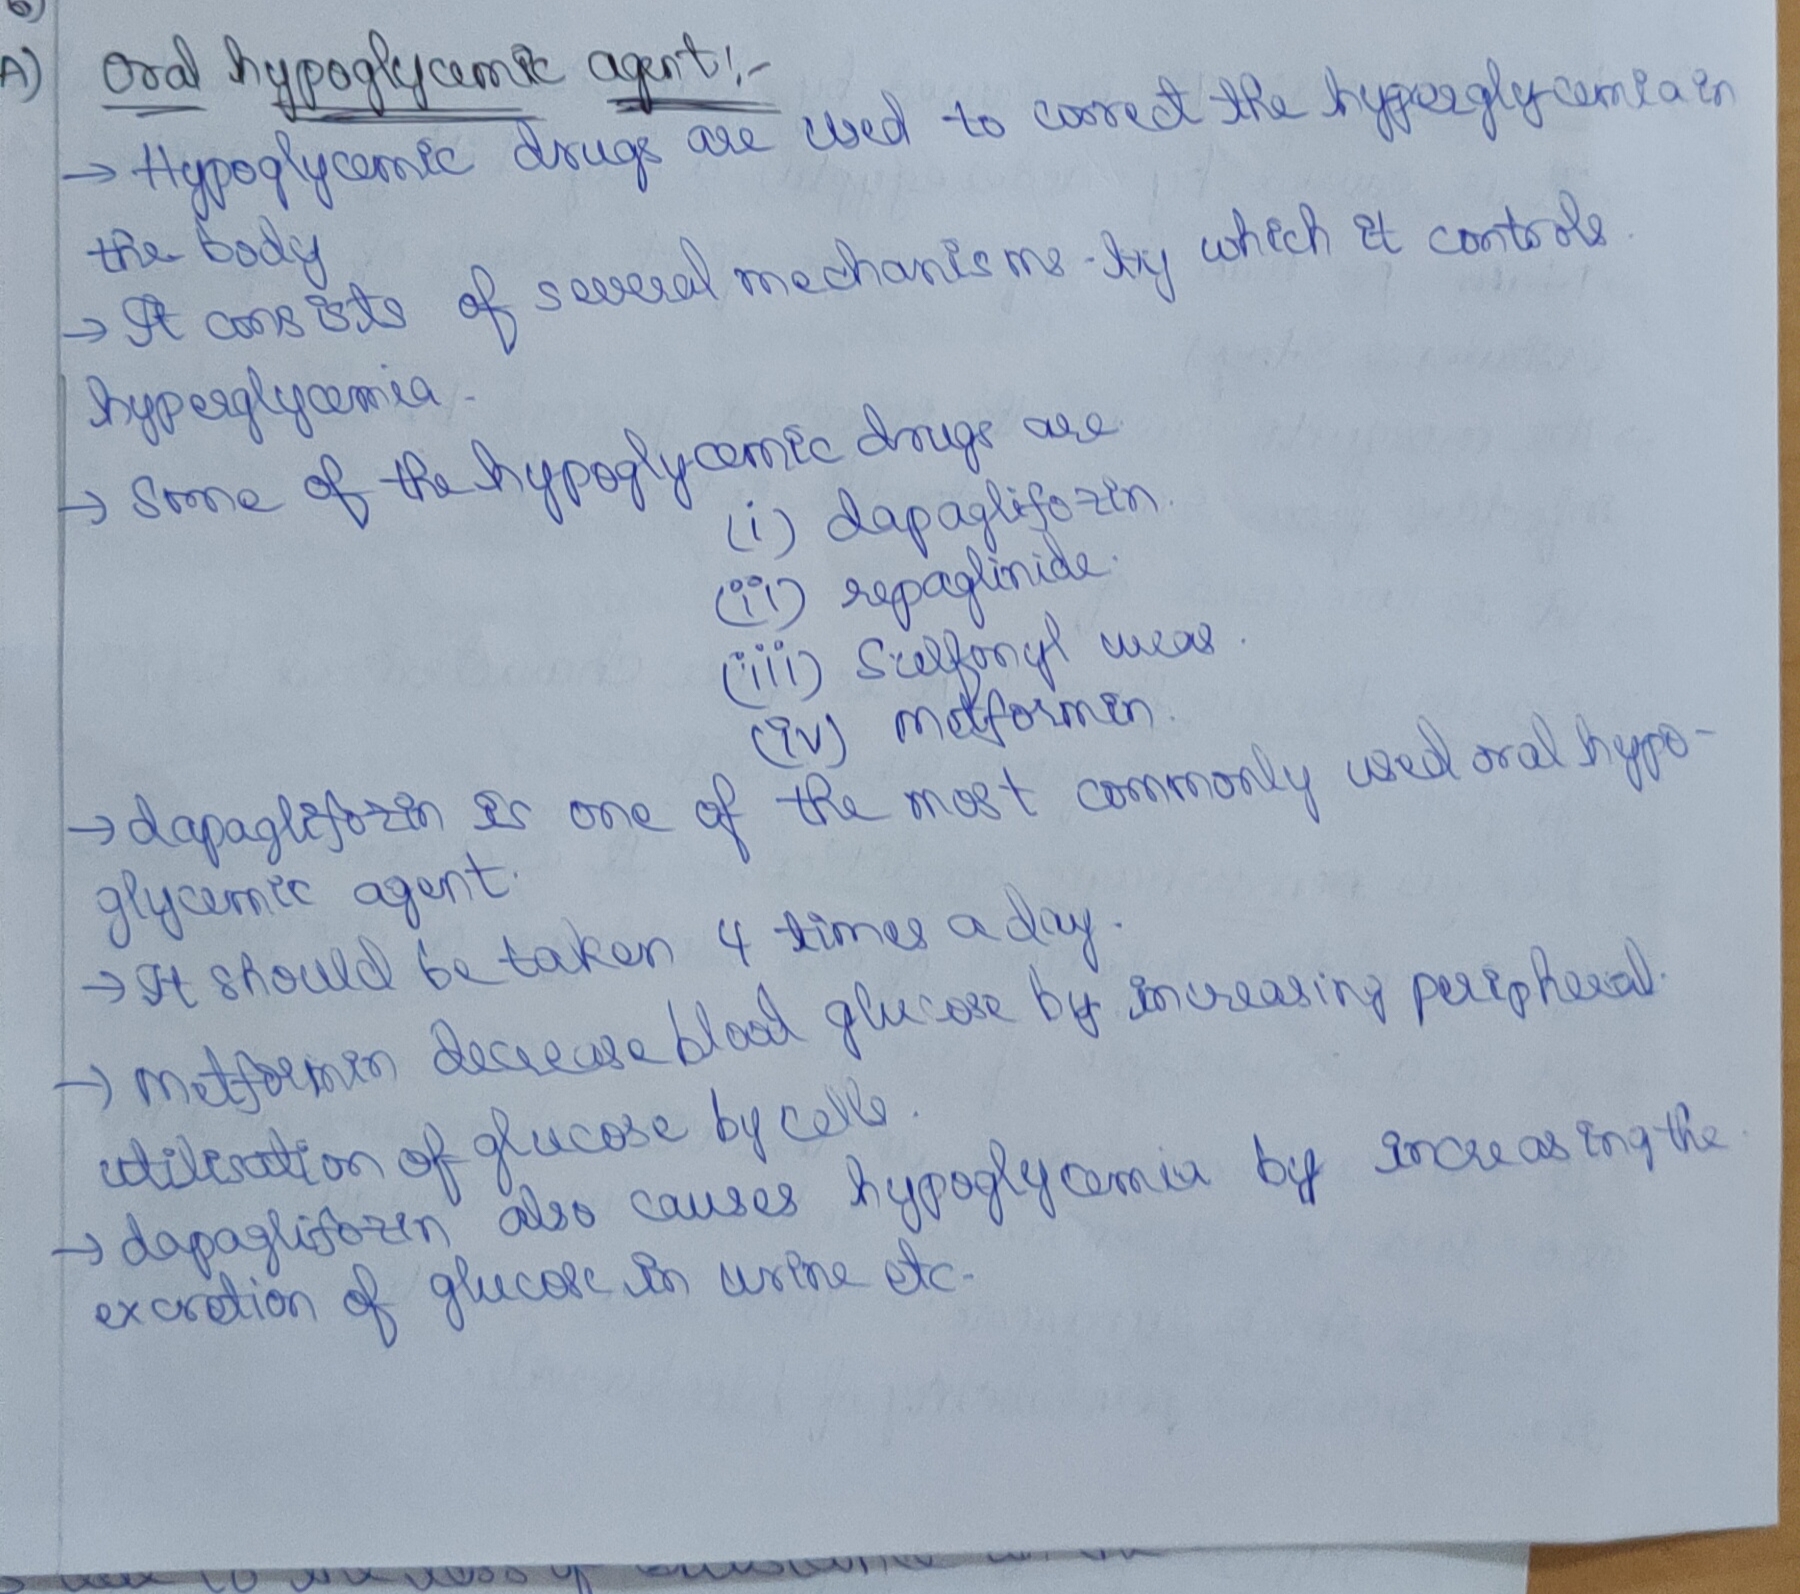 A) Oral hypoglycemic agent:-
→ Hypoglycemic drugs are used to correct the hyperglycemia in
the body
→ It consists of several mechanisms by which it controls
hyperglycemia.
→ Some of the hypoglycemic drugs are
(i) dapaglifozin.
(ii) repaglinide.
(iii) Sulfonyl ureas.
(iv) metformin.
→ dapaglifozin is one of the most commonly used oral hypo-
glycemic agent.
→ It should be taken 4 times a day.
→ Metformin decrease blood glucose by increasing peripheral
utilisation of glucose by cells.
→ dapaglifozin also causes hypoglycemia by increasing the
excretion of glucose in urine etc.